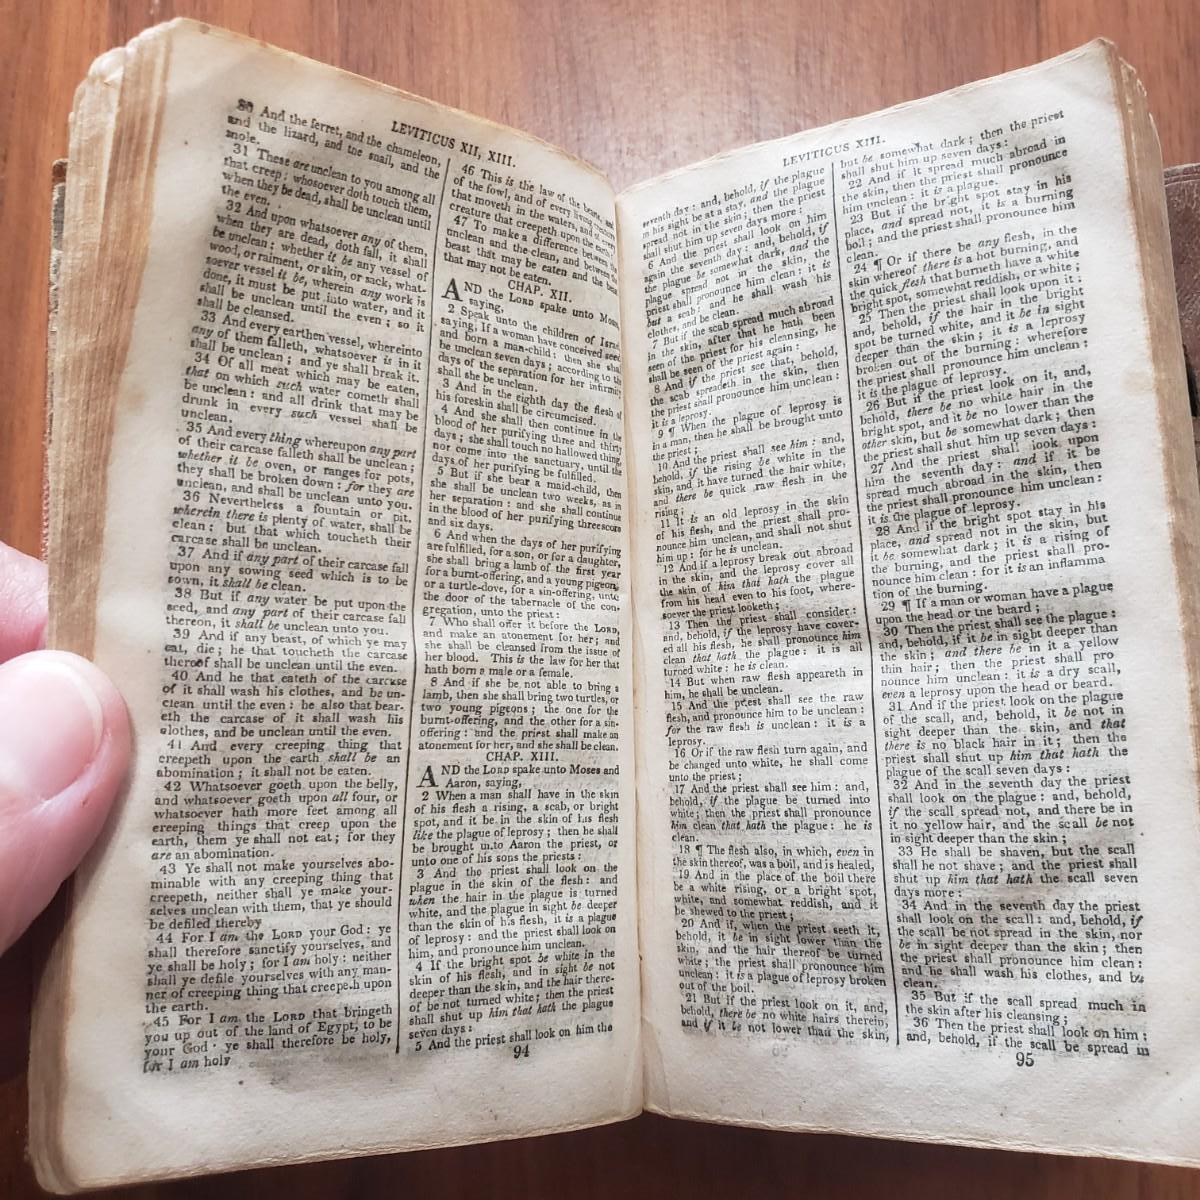 LEVITICUS XII, XIII.
30 And the ferret, and the chameleon,
and the lizard, and the snail, and the
mole.
31 These are unclean to you among all
that creep: whosoever doth touch them,
when they be dead, shall be unclean until
the even.
32 And upon whatsoever any of them,
when they are dead, doth fall, it shall
be unclean; whether it be any vessel of
wood, or raiment, or skin, or sack, what-
soever vessel it be, wherein any work is
done, it must be put into water, and it
shall be unclean until the even; so it
shall be cleansed.
33 And every earthen vessel, whereinto
any of them falleth, whatsoever is in it
shall be unclean; and ye shall break it.
34 Of all meat which may be eaten,
that on which such water cometh shall
be unclean: and all drink that may be
drunk in every such vessel shall be
unclean.
35 And every thing whereupon any part
of their carcase falleth shall be unclean;
whether it be oven, or ranges for pots,
they shall be broken down: for they are
unclean, and shall be unclean unto you.
36 Nevertheless a fountain or pit,
wherein there is plenty of water, shall be
clean: but that which toucheth their
carcase shall be unclean.
37 And if any part of their carcase fall
upon any sowing seed which is to be
sown, it shall be clean.
38 But if any water be put upon the
seed, and any part of their carcase fall
thereon, it shall be unclean unto you.
39 And if any beast, of which ye may
eat, die; he that toucheth the carcase
thereof shall be unclean until the even.
40 And he that eateth of the carcase
of it shall wash his clothes, and be un-
clean until the even: he also that bear-
eth the carcase of it shall wash his
clothes, and be unclean until the even.
41 And every creeping thing that
creepeth upon the earth shall be an
abomination; it shall not be eaten.
42 Whatsoever goeth upon the belly,
and whatsoever goeth upon all four, or
whatsoever hath more feet among all
creeping things that creep upon the
earth, them ye shall not eat; for they
are an abomination.
43 Ye shall not make yourselves abo-
minable with any creeping thing that
creepeth, neither shall ye make your-
selves unclean with them, that ye should
be defiled thereby
44 For I am the LORD your God: ye
shall therefore sanctify yourselves, and
ye shall be holy; for I am holy: neither
shall ye defile yourselves with any man-
ner of creeping thing that creepeth upon
the earth.
45 For I am the LORD that bringeth
you up out of the land of Egypt, to be
your God: ye shall therefore be holy,
for I am holy
46 This is the law of the beasts, and
of the fowl, and of every living creature
that moveth in the waters, and of every
creature that creepeth upon the earth;
47 To make a difference between the
unclean and the clean, and between the
beast that may be eaten and the beast
that may not be eaten.
CHAP. XII.
AND the LORD spake unto Moses,
saying,
2 Speak unto the children of Israel,
saying, If a woman have conceived seed,
and born a man-child: then she shall
be unclean seven days; according to the
days of the separation for her infirmity
shall she be unclean.
3 And in the eighth day the flesh of
his foreskin shall be circumcised.
4 And she shall then continue in the
blood of her purifying three and thirty
days; she shall touch no hallowed thing,
nor come into the sanctuary, until the
days of her purifying be fulfilled.
5 But if she bear a maid-child, then
she shall be unclean two weeks, as in
her separation: and she shall continue
in the blood of her purifying threescore
and six days.
6 And when the days of her purifying
are fulfilled, for a son, or for a daughter,
she shall bring a lamb of the first year
for a burnt-offering, and a young pigeon,
or a turtle-dove, for a sin-offering, unto
the door of the tabernacle of the con-
gregation, unto the priest:
7 Who shall offer it before the LORD,
and make an atonement for her; and
she shall be cleansed from the issue of
her blood. This is the law for her that
hath born a male or a female.
8 And if she be not able to bring a
lamb, then she shall bring two turtles, or
two young pigeons; the one for the
burnt-offering, and the other for a sin-
offering: and the priest shall make an
atonement for her, and she shall be clean.
CHAP. XIII.
AND the LORD spake unto Moses and
Aaron, saying,
2 When a man shall have in the skin
of his flesh a rising, a scab, or bright
spot, and it be in the skin of his flesh
like the plague of leprosy; then he shall
be brought unto Aaron the priest, or
unto one of his sons the priests:
3 And the priest shall look on the
plague in the skin of the flesh: and
when the hair in the plague is turned
white, and the plague in sight be deeper
than the skin of his flesh, it is a plague
of leprosy: and the priest shall look on
him, and pronounce him unclean.
4 If the bright spot be white in the
skin of his flesh, and in sight be not
deeper than the skin, and the hair there-
of be not turned white; then the priest
shall shut up him that hath the plague
seven days:
5 And the priest shall look on him the
94
LEVITICUS XIII.
seventh day: and, behold, if the plague
in his sight be at a stay, and the plague
spread not in the skin; then the priest
shall shut him up seven days more:
6 And the priest shall look on him
again the seventh day: and, behold, if
the plague be somewhat dark, and the
plague spread not in the skin, the
priest shall pronounce him clean: it is
but a scab: and he shall wash his
clothes, and be clean.
7 But if the scab spread much abroad
in the skin, after that he hath been
seen of the priest for his cleansing, he
shall be seen of the priest again:
8 And if the priest see that, behold,
the scab spreadeth in the skin, then
the priest shall pronounce him unclean:
it is a leprosy.
9 ¶ When the plague of leprosy is
in a man, then he shall be brought unto
the priest;
10 And the priest shall see him: and,
behold, if the rising be white in the
skin, and it have turned the hair white,
and there be quick raw flesh in the
rising;
11 It is an old leprosy in the skin
of his flesh, and the priest shall pro-
nounce him unclean, and shall not shut
him up: for he is unclean.
12 And if a leprosy break out abroad
in the skin, and the leprosy cover all
the skin of him that hath the plague
from his head even to his foot, where-
soever the priest looketh;
13 Then the priest shall consider:
and, behold, if the leprosy have cover-
ed all his flesh, he shall pronounce him
clean that hath the plague: it is all
turned white: he is clean.
14 But when raw flesh appeareth in
him, he shall be unclean.
15 And the priest shall see the raw
flesh, and pronounce him to be unclean:
for the raw flesh is unclean: it is a
leprosy.
16 Or if the raw flesh turn again, and
be changed unto white, he shall come
unto the priest;
17 And the priest shall see him: and,
behold, if the plague be turned into
white; then the priest shall pronounce
him clean that hath the plague: he is
clean.
18 ¶ The flesh also, in which, even in
the skin thereof, was a boil, and is healed,
19 And in the place of the boil there
be a white rising, or a bright spot,
white, and somewhat reddish, and it
be shewed to the priest;
20 And if, when the priest seeth it,
behold, it be in sight lower than the
skin, and the hair thereof be turned
white; the priest shall pronounce him
unclean: it is a plague of leprosy broken
out of the boil.
21 But if the priest look on it, and,
behold, there be no white hairs therein,
and if it be not lower than the skin,
but be somewhat dark; then the priest
shall shut him up seven days:
22 And if it spread much abroad in
the skin, then the priest shall pronounce
him unclean: it is a plague.
23 But if the bright spot stay in his
place, and spread not, it is a burning
boil; and the priest shall pronounce him
clean.
24 ¶ Or if there be any flesh, in the
skin whereof there is a hot burning, and
the quick flesh that burneth have a white
bright spot, somewhat reddish, or white;
25 Then the priest shall look upon it:
and, behold, if the hair in the bright
spot be turned white, and it be in sight
deeper than the skin; it is a leprosy
broken out of the burning: wherefore
the priest shall pronounce him unclean:
it is the plague of leprosy.
26 But if the priest look on it, and,
behold, there be no white hair in the
bright spot, and it be no lower than the
other skin, but be somewhat dark; then
the priest shall shut him up seven days:
27 And the priest shall look upon
him the seventh day: and if it be
spread much abroad in the skin, then
the priest shall pronounce him unclean:
it is the plague of leprosy.
28 And if the bright spot stay in his
place, and spread not in the skin, but
it be somewhat dark; it is a rising of
the burning, and the priest shall pro-
nounce him clean: for it is an inflamma
tion of the burning.
29 ¶ If a man or woman have a plague
upon the head or the beard;
30 Then the priest shall see the plague:
and, behold, if it be in sight deeper than
the skin; and there be in it a yellow
thin hair; then the priest shall pro
nounce him unclean: it is a dry scall,
even a leprosy upon the head or beard.
31 And if the priest look on the plague
of the scall, and, behold, it be not in
sight deeper than the skin, and that
there is no black hair in it; then the
priest shall shut up him that hath the
plague of the scall seven days:
32 And in the seventh day the priest
shall look on the plague: and, behold,
if the scall spread not, and there be in
it no yellow hair, and the scall be not
in sight deeper than the skin;
33 He shall be shaven, but the scall
shall he not shave; and the priest shall
shut up him that hath the scall seven
days more:
34 And in the seventh day the priest
shall look on the scall: and, behold, if
the scall be not spread in the skin, nor
be in sight deeper than the skin; then
the priest shall pronounce him clean:
and he shall wash his clothes, and be
clean.
35 But if the scall spread much in
the skin after his cleansing;
36 Then the priest shall look on him:
and, behold, if the scall be spread in
95